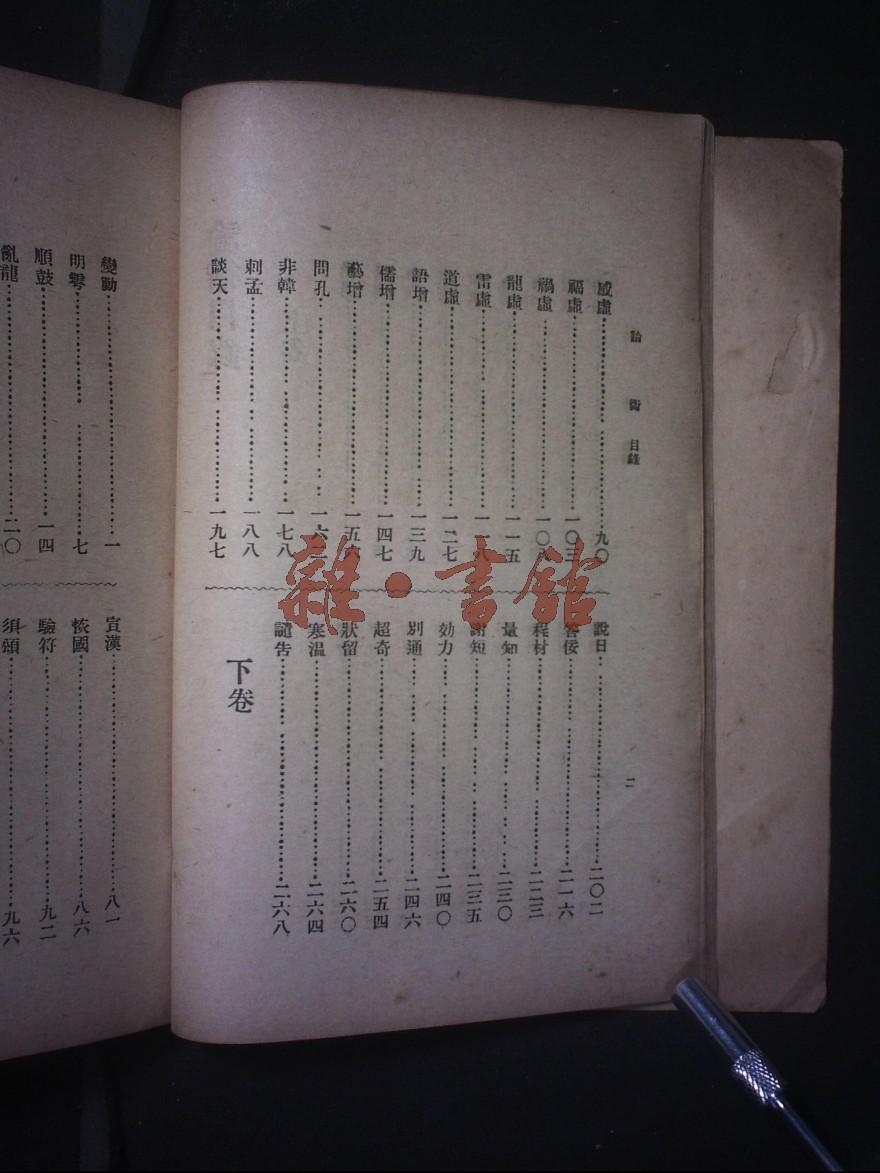 論衡 目錄
二
感虛……九〇
福虛……一〇三
禍虛……一〇八
龍虛……一一五
雷虛……一一八
道虛……一二七
語增……一三九
儒增……一四七
藝增……一五六
問孔……一六
非韓……一七八
刺孟……一八八
談天……一九七
說日……二〇二
答佞……二一六
程材……二二三
量知……二三〇
謝短……二三五
効力……二四〇
別通……二四六
超奇……二五四
狀留……二六〇
寒溫……二六四
譴告……二六八
下卷
變動……一
明雩……七
順鼓……一四
亂龍……二〇
宣漢……八一
恢國……八六
驗符……九二
須頌……九六
雜•書館